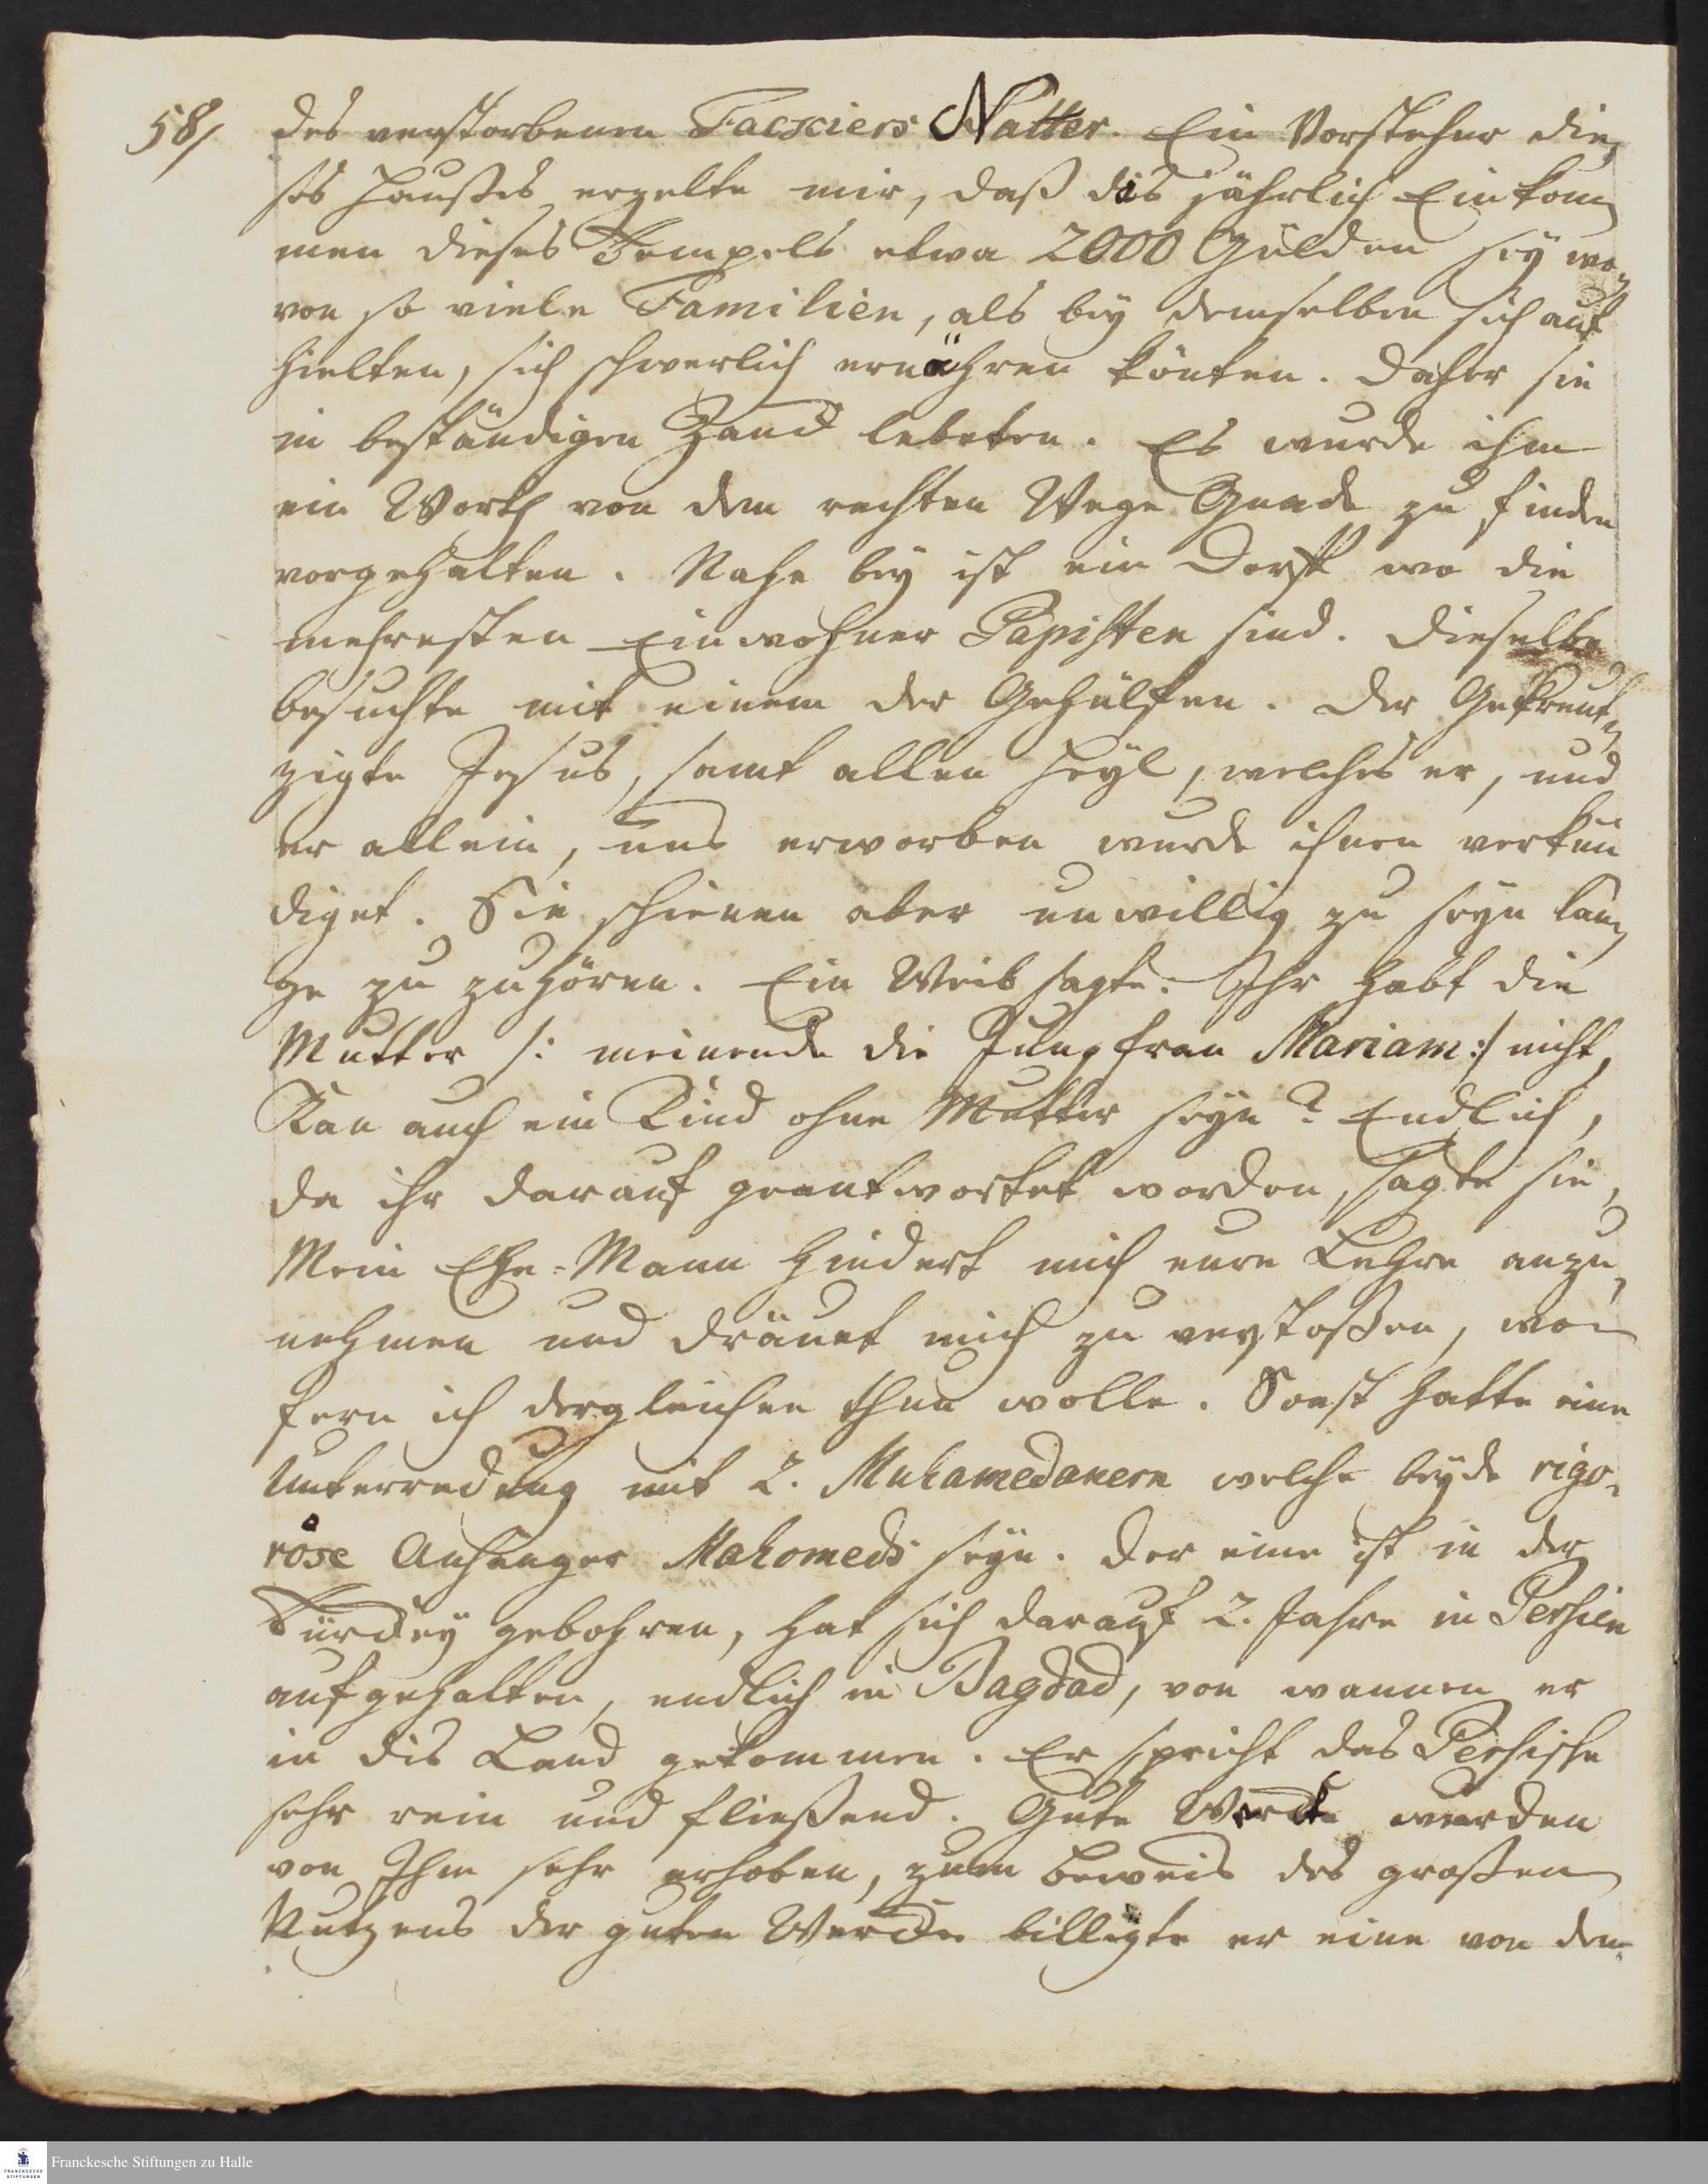 58/
des verstorbenen Facxiers Natter. Ein Vorsteher die-
ses Haußes erzelte mir, daß das jährlich Einkom-
men dieses Tempels etwa 2000 Gulden sey wo-
von so viele Familien, als bey demselben sich auf
hielten, sich schwerlich ernähren könten. Daher sie
in beständigen Zanck lebeten. Es wurde ihm
ein Worth von dem rechten Wege Gnade zu finden
vorgehalten. Nahe bey ist ein Dorff wo die
mehresten Einwohner Papisten sind. Dieselbe
besuchte mit einem der Gehülffen. Der Gekreut-
zigte Jesus, samt allen Heyl, welches er, und
er allein, uns erworben wurde ihnen verkün
diget. Sie schienen aber unwillig zu seyn lan-
ge zu zuhören. Ein Weib sagte: Ihr habt die
Mutter /: meinende die Jungfrau Mariam :/ nicht,
Kan auch ein Kind ohne Mutter seyn? Endlich,
da ihr darauf geantwortet worden, sagte sie,
Mein Ehe-Mann hindert mich eure Lehre anzu-
nehmen und dräuet mich zu verstoßen, wo-
fern ich dergleichen thun wolle. Sonst hatte eine
Unterredung mit 2. Muhamedanern welche beyde rigo-
rose Anhänger Mahomeds seyn. Der eine ist in der
Türckey gebohren, hat sich darauf 2. Jahre in Persien
aufgehalten, endlich in Bagdad, von wannen er
in dis Land gekommen. Er spricht das Persische
sehr rein und fließend. Gute Wercke wurden
von Ihm sehr erhoben, zum Beweis des großen
Nutzens der guten Wercke billigte er eine von den
Franckesche Stiftungen zu Halle
FRANCKESCHE
STIFTUNGEN